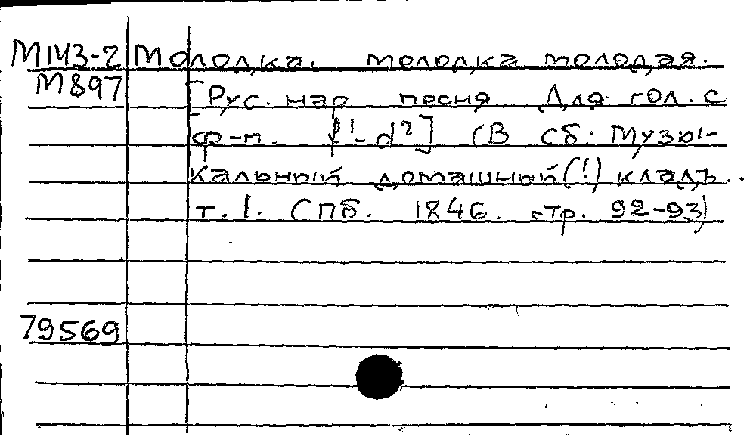 М143-2 Молодка, молодка молодая.
М897 [Рус. нар песня Для гол. с
ф-п. f¹-d²] (В сб. Музы-
кальный домашный (!) кладъ.
т. 1. СПб. 1846. стр. 92-93)
79569